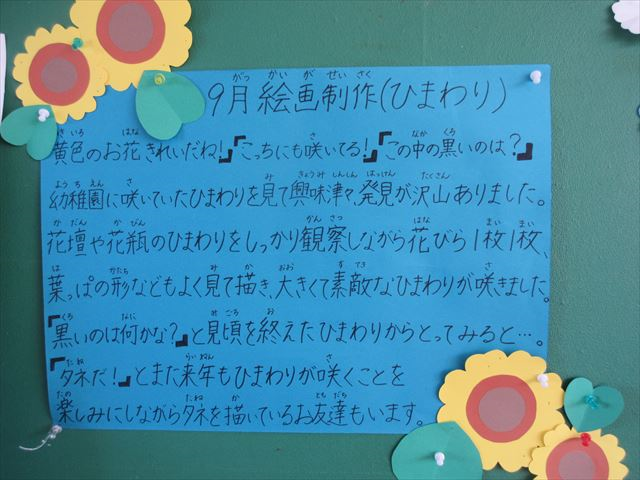 9月 絵画制作(ひまわり)
黄色のお花きれいだね!」「こっちにも咲いてる!」「この中の黒いのは?」
幼稚園に咲いていたひまわりを見て興味津々、発見が沢山ありました。
花壇や花瓶のひまわりをしっかり観察しながら花びら1枚1枚、
葉っぱの形などもよく見て描き、大きくて素敵なひまわりが咲きました。
「黒いのは何かな?」と見頃を終えたひまわりからとってみると…。
「タネだ!」とまた来年もひまわりが咲くことを
楽しみにしながらタネを描いているお友達もいます。